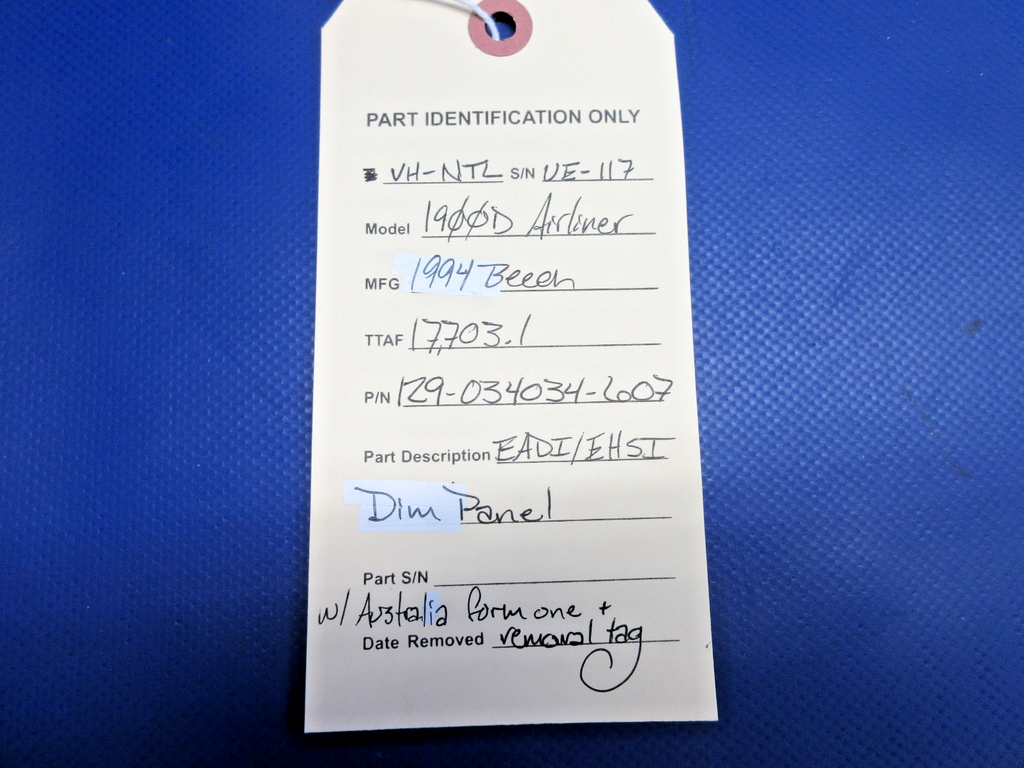 PART IDENTIFICATION ONLY
VH-NTL S/N UE-117
Model 1900D Airliner
MFG 1994 Beech
TTAF 17,703.1
P/N 129-034034-607
Part Description EADI/EHSI
Dim Panel
Part S/N
w/ Australia form one +
Date Removed removal tag